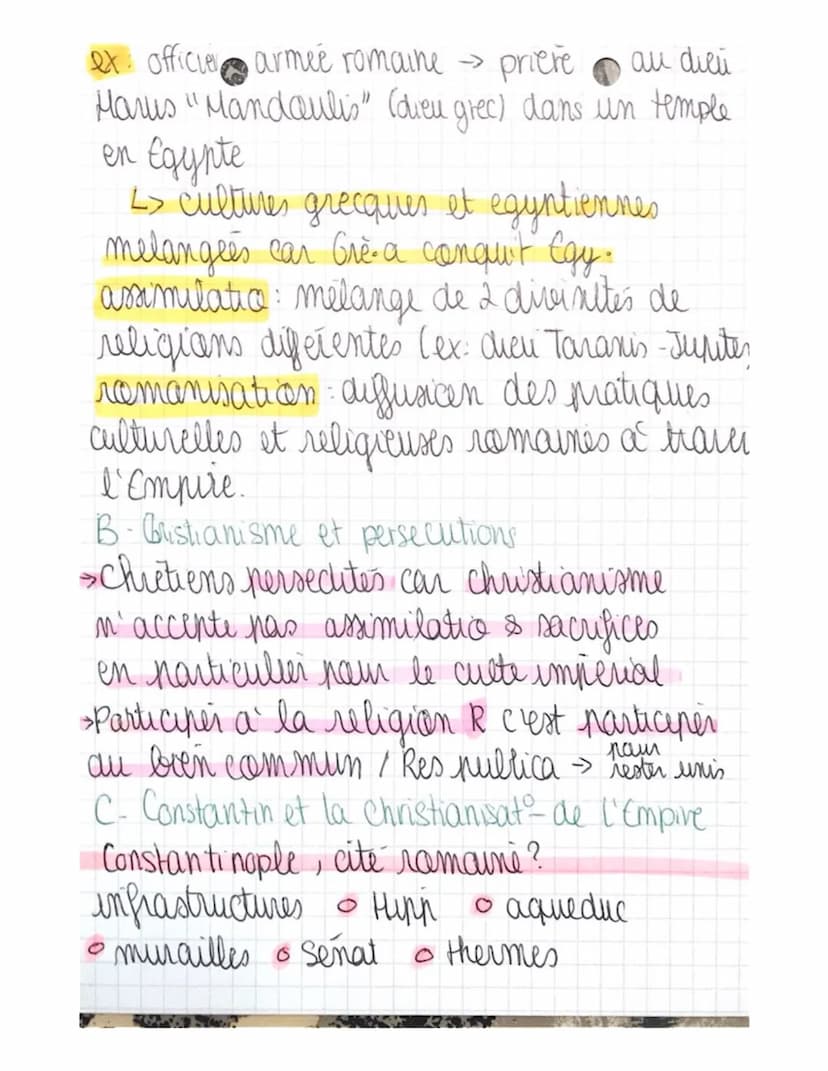 ex: officier armée romaine → prière au dieu
Horus "Mandoulis" (dieu grec) dans un temple
en Egypte
↳ cultures grecques et egyptiennes
melangées car Grè. a conquit Egy.
assimilatio : mélange de 2 divinités de
religions différentes (ex: dieu Taranis - Jupiter
romanisation : diffusion des pratiques
culturelles et religieuses romaines à traver
l'Empire.
B - Christianisme et persecutions
→ Chrétiens persecutés car christianisme
n'accepte pas assimilatio & sacrifices
en particulier pour le culte impérial
→ Participer à la religion R c'est participer
au bien commun / Res publica → pour rester unis
C - Constantin et la christianisat° de l'Empire
Constantinople, cité romaine ?
infrastructures o Hipp o aqueduc
o murailles o Sénat o thermes